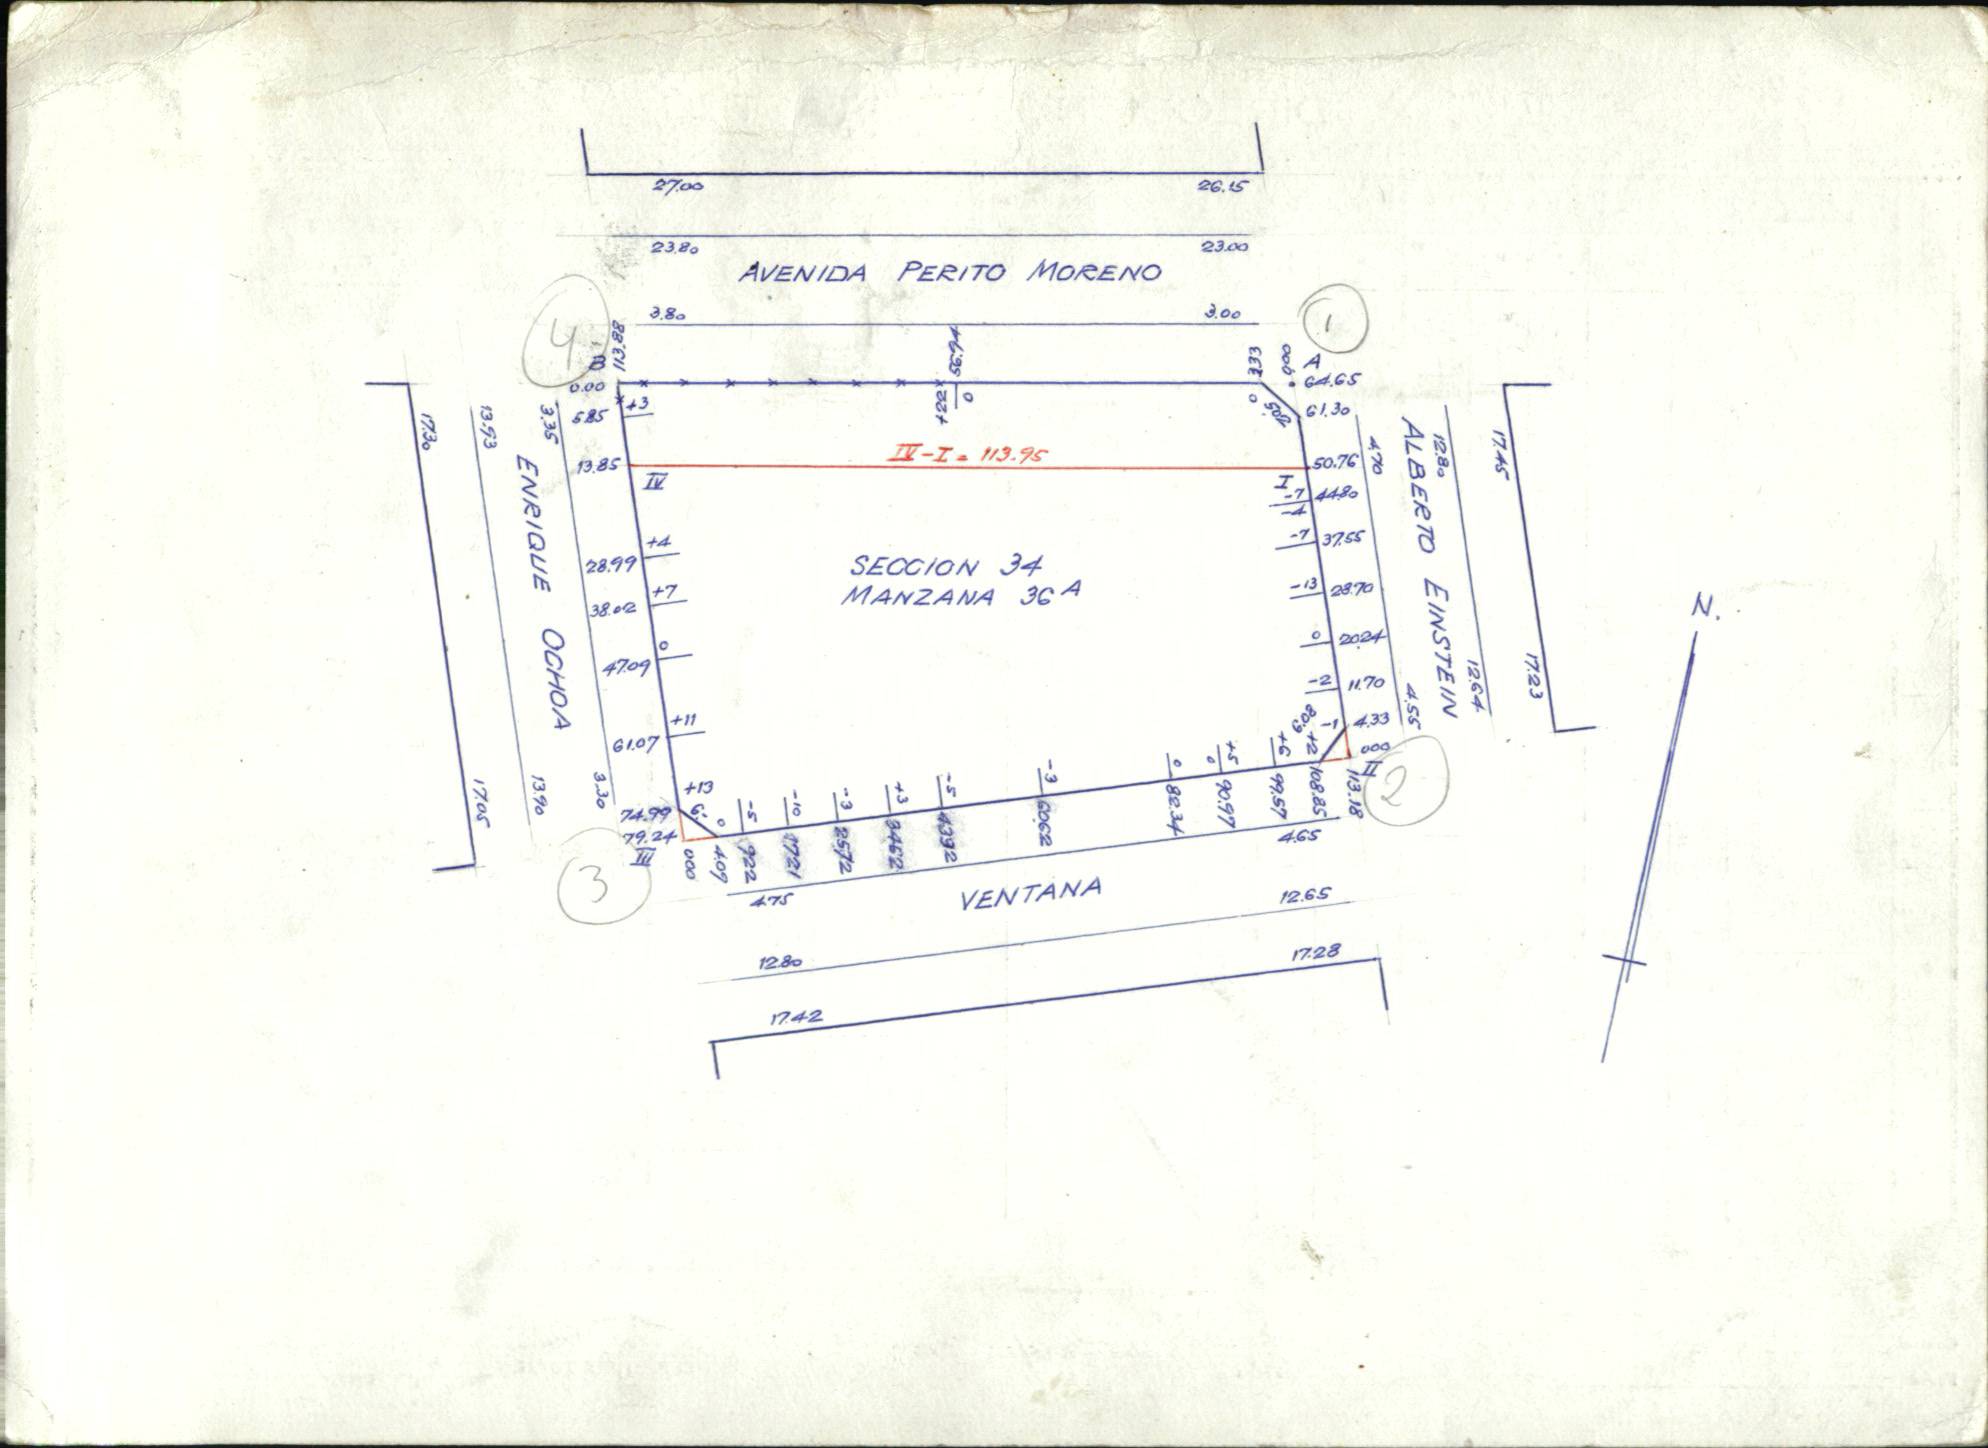 27.00 26.15
23.80 23.00
AVENIDA PERITO MORENO
3.80 3.00
4 1
B 113.88 46.95 3.33 0.00 A
0.00 +22 0 0 64.65
5.85 +3 61.30
IV-I = 113.95
13.85 IV I 50.76
-7 44.80
-4
-7 37.55
28.99 +4
SECCION 34
MANZANA 36A
38.02 +7 -13 28.70
47.09 0 0 20.24
-2 11.70
61.07 +11 -1 4.33
6.08 +2 000
II
74.99 +13
79.24
III
3 2
17.30 17.05
13.93 13.90
ENRIQUE OCHOA
3.35 3.30
4.70 4.55
ALBERTO EINSTEIN
12.80 12.64
17.45 17.23
0 -5 -10 -3 +3 -5 -3 0 0 +5 +6
000 4.09 9.22 17.21 25.72 34.62 43.92 60.62 82.34 90.97 99.57 108.85 113.18
4.75 4.65
VENTANA
12.80 12.65
17.42 17.28
N.